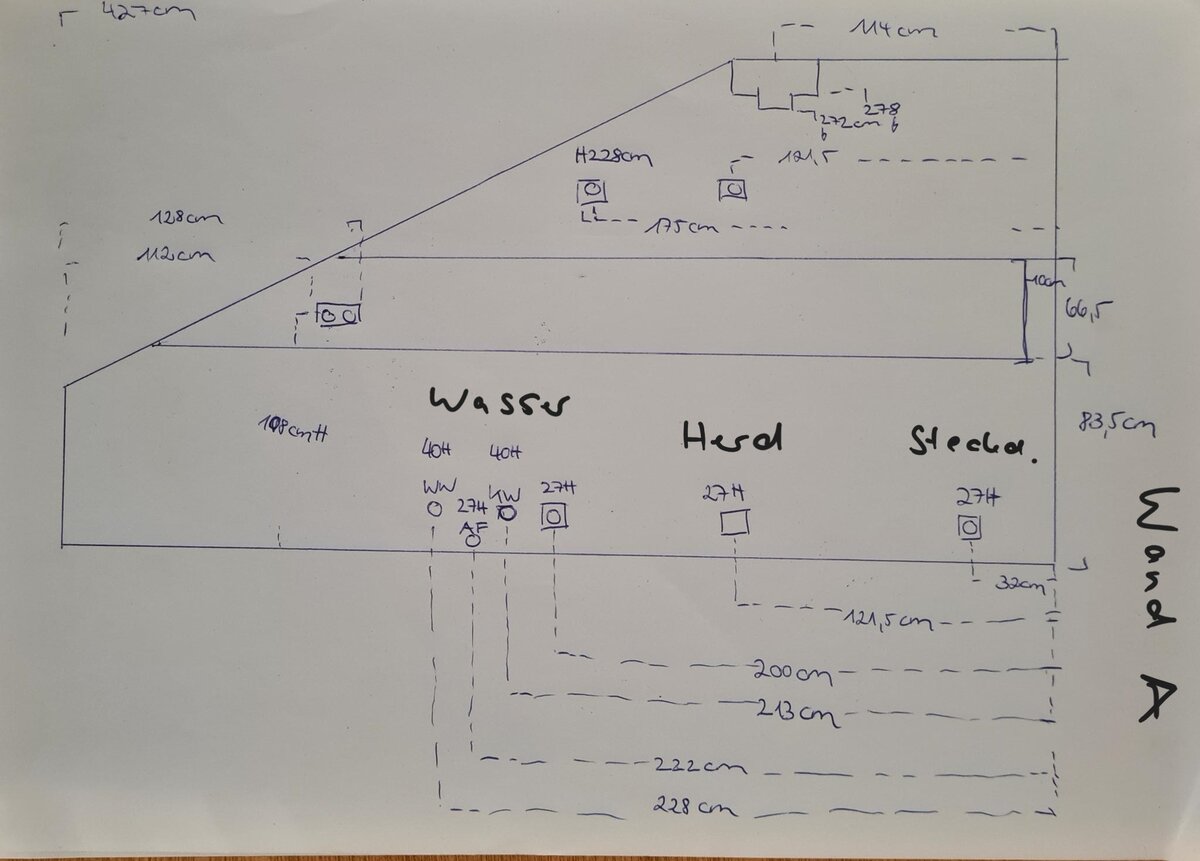 427cm
114cm
278
272cm
H228cm
121,5
128cm
175cm
112cm
10cm
66,5
Wasser
83,5cm
108cmH
Herd
Steckd.
40H
40H
WW
27H
KW
27H
27H
27H
AF
Wand A
32cm
121,5cm
200cm
213cm
222cm
228cm